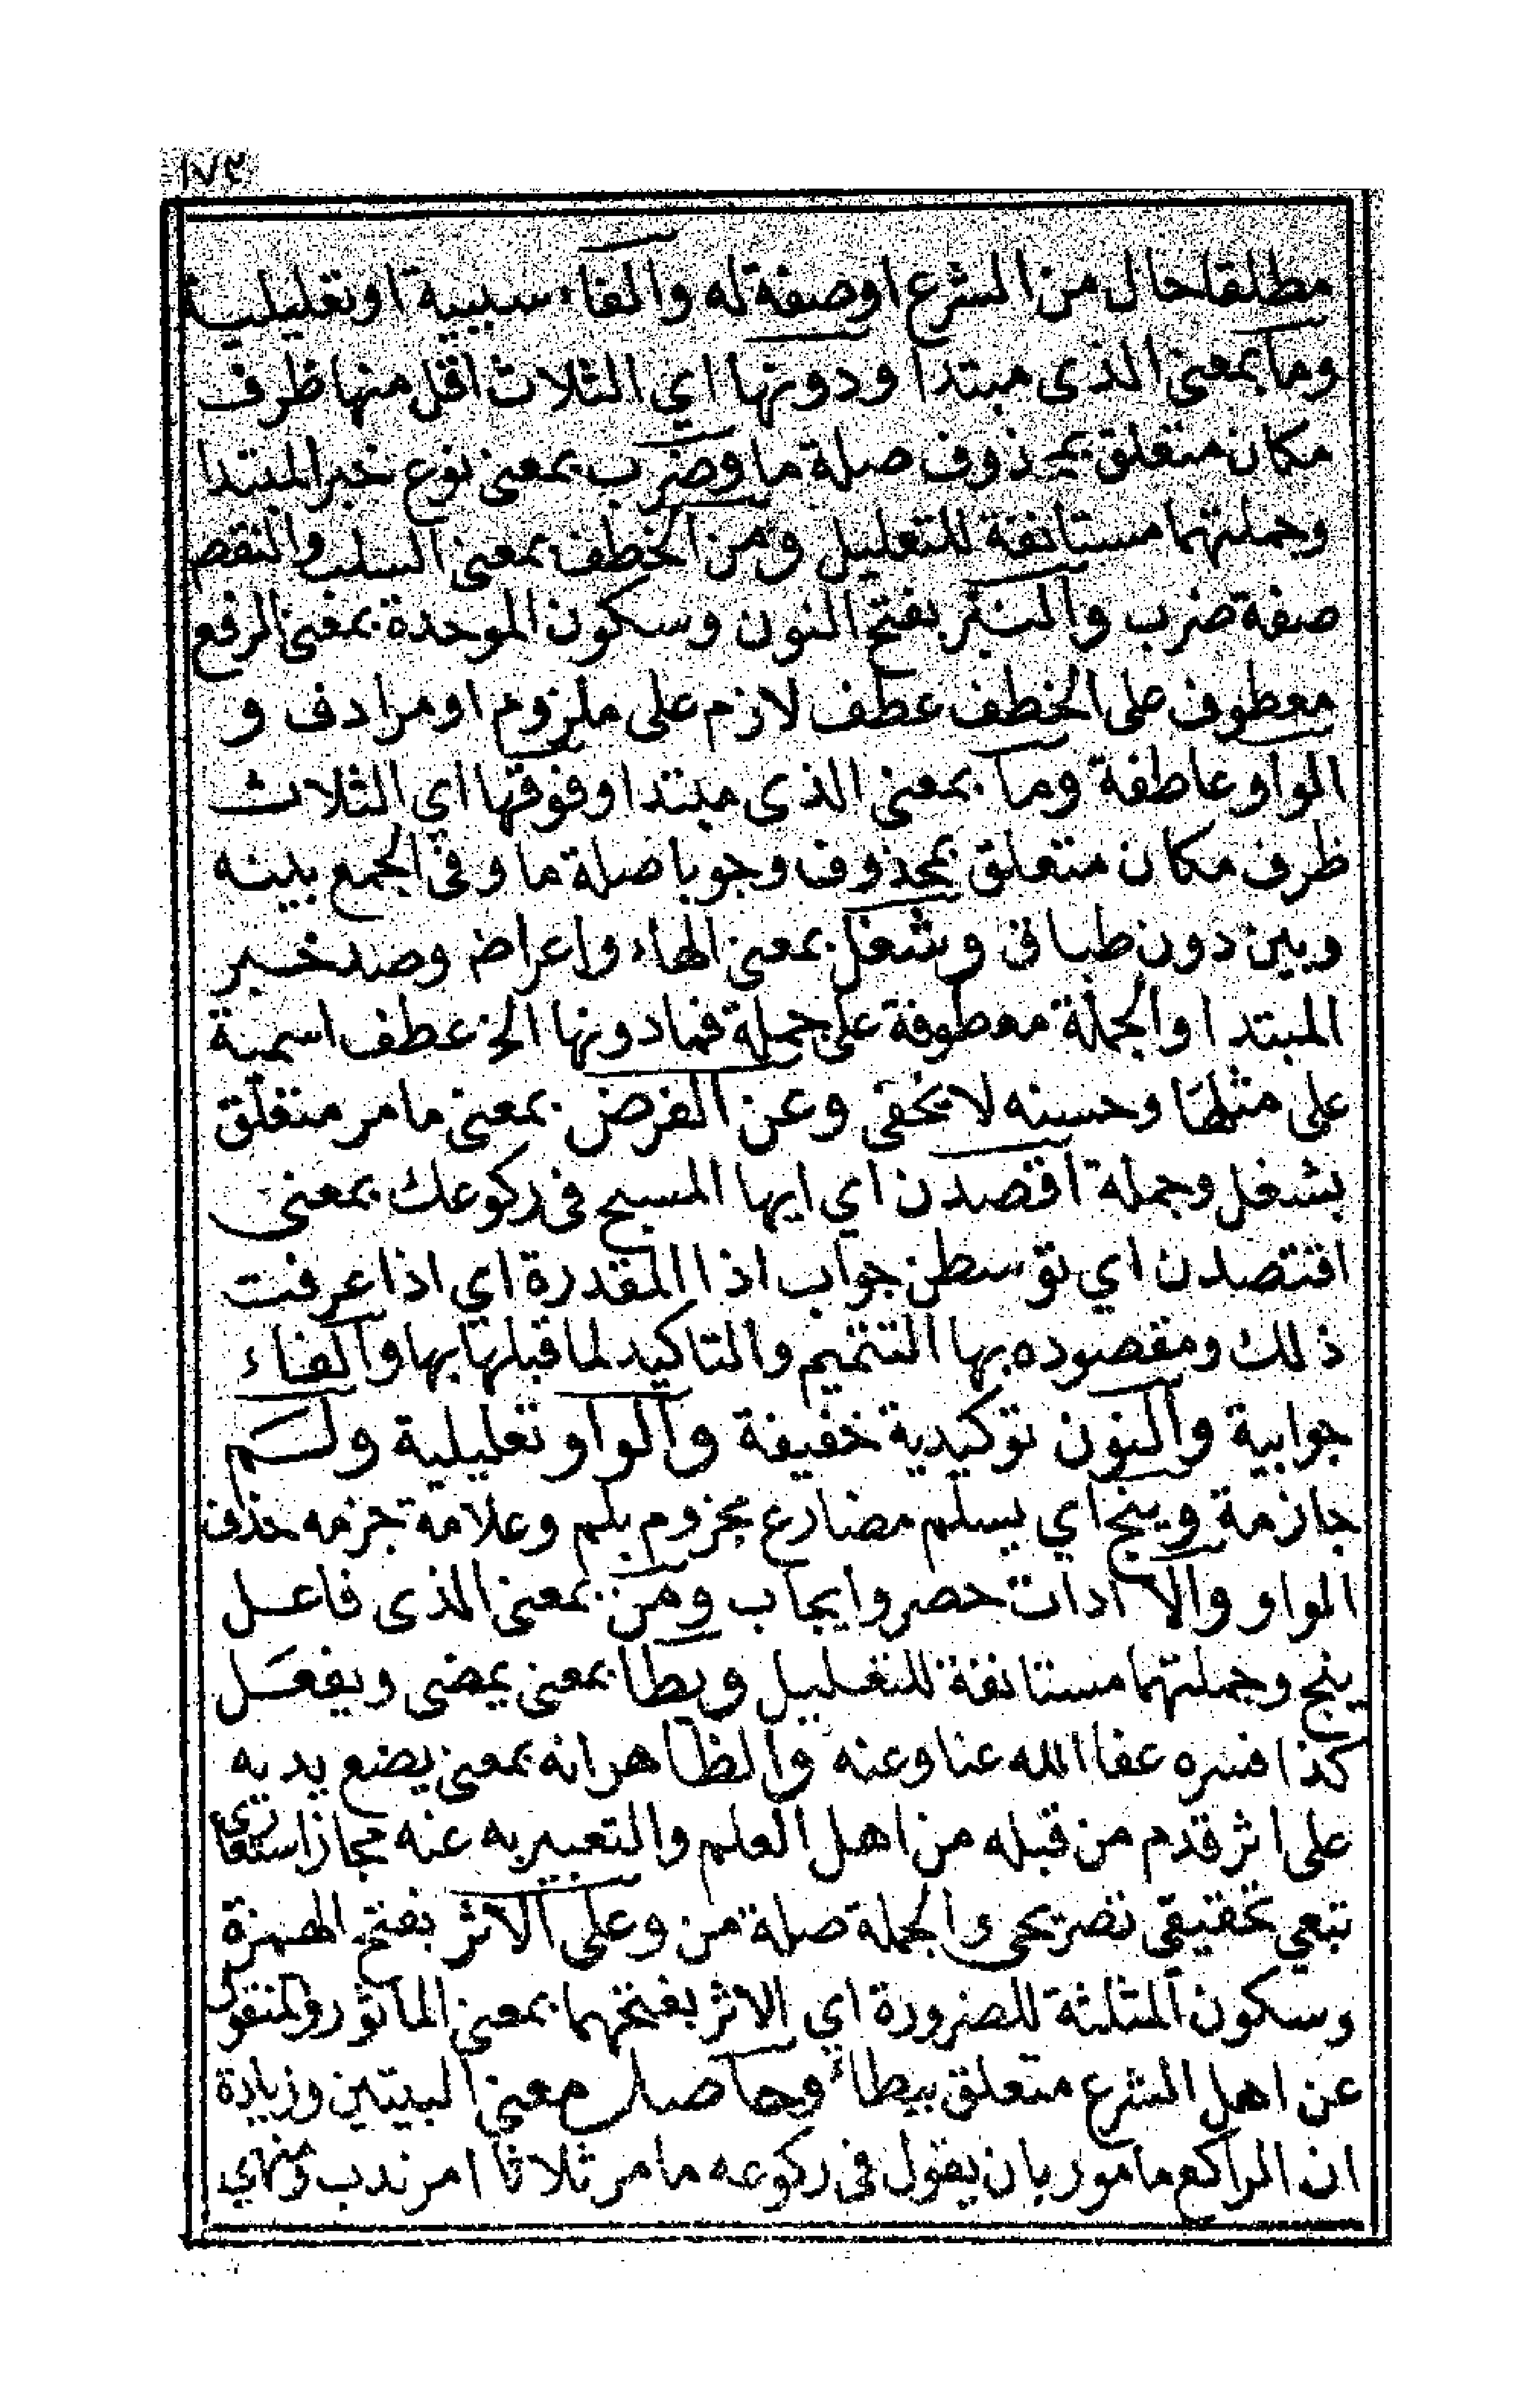 ١٧٤
مطلقا حال من الشرع او صفة له والفاء سببية او تعليلية
وما بمعنى الذى مبتدا ودونها اي الثلاث اقل منها ظرف
مكان متعلق بمحذوف صلة ما وضرب بمعنى نوع خبر المبتدا
وجملتهما مستانفة للتعليل ومن الخطف بمعنى السلب والنقص
صفة ضرب والنبر بفتح النون وسكون الموحدة بمعنى الرفع
معطوف على الخطف عطف لازم على ملزوم او مرادف و
الواو عاطفة وما بمعنى الذى مبتدا وفوقها اى الثلاث
ظرف مكان متعلق بمحذوف وجوبا صلة ما وفى الجمع بينه
وبين دون طباق وشغل بمعنى الهاء واعراض وصد خبر
المبتدا والجملة معطوفة على جملة فما دونها الخ عطف اسمية
على مثلها وحسنه لا يخفى وعن الفرض بمعنى ما مر متعلق
بشغل وجملة اقصدن اي ايها المسبح فى ركوعك بمعنى
اقتصدن اي توسطن جواب اذا المقدرة اي اذا عرفت
ذلك ومقصوده بها التتميم والتاكيد لما قبلها بها والفاء
جوابية والنون توكيدية خفيفة والواو تعليلية ولم
جازمة وينج اي يسلم مضارع مجزوم بلم وعلامة جزمه حذف
الواو والا ادات حصر وايجاب ومن بمعنى الذى فاعل
ينج وجملتهما مستانفة للتعليل ويطا بمعنى يمضى ويفعل
كذا فسره عفا الله عنا وعنه والظاهر انه بمعنى يضع يديه
على اثر قدم من قبله من اهل العلم والتعبير به عنه مجاز استعارى
تبعي تحقيقي تصريحى والجملة صلة من وعلى الاثر بفتح الهمزة
وسكون المثلثة للضرورة اي الاثر بفتحهما بمعنى الماثور والمنقول
عن اهل الشرع متعلق بيطاء وحاصل معنى البيتين وزيادة
ان الراكع مامور بان يقول فى ركوعه ما مر ثلاثا امر ندب ومنهي